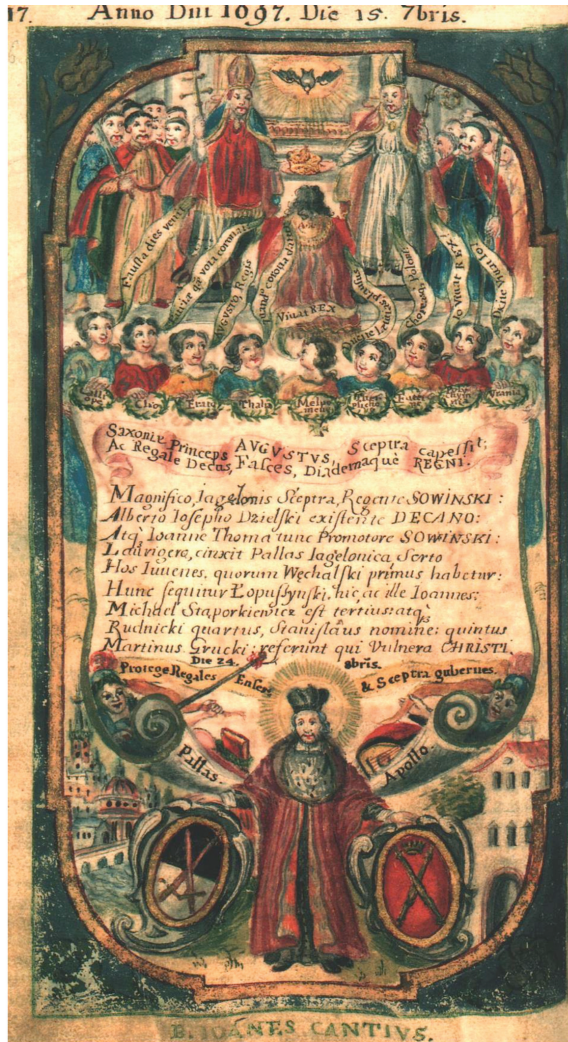 17. Anno Dni 1697. Die 15. 7bris.
Fausta dies venit
vota coronat
AUGUSTO, Regis
corona caput
Vivat REX
Io Vivat REX
Dicite Vivat Io!
Clio
Erato
Thalia
Euterpe
Urania
SAXONIÆ Princeps AVGVSTVS, Sceptra capessit;
Ac Regale Decus, Fasces, Diademaquè REGNI.
Magnifico, Jagelonis Sceptra, Regente SOWINSKI:
Alberto Iosepho Dzielski existente DECANO:
Atq; Ioanne Thoma tunc Promotore SOWINSKI:
Laurigero, cinxit Pallas Iagelonica Serto
Hos Iuuenes, quorum Węchalski primus habetur:
Hunc sequitur Łopuszynski, hic, ac ille Ioannes;
Michael Staporkiewicz est tertius: atq;
Rudnicki quartus, Stanislaus nomine; quintus
Martinus Grucki; referunt qui Vulnera CHRISTI.
Die 24. 8bris.
Protege Regales Enses & Sceptra gubernes.
Pallas. Apollo.
B. IOANES CANTIVS.